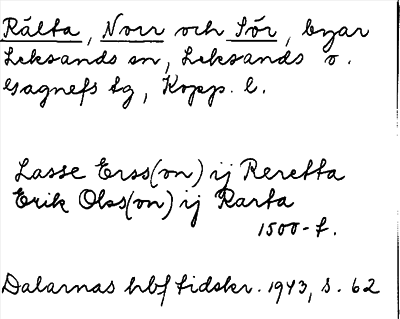 Rälta, Norr och Sör, byar
Leksands sn, Leksands o.
Gagnefs tg, Kopp. l.
Lasse Erss(on) ij Reretta
Erik Olss(on) ij Rarta
1500-t.
Dalarnas hbf tidskr. 1943, s. 62